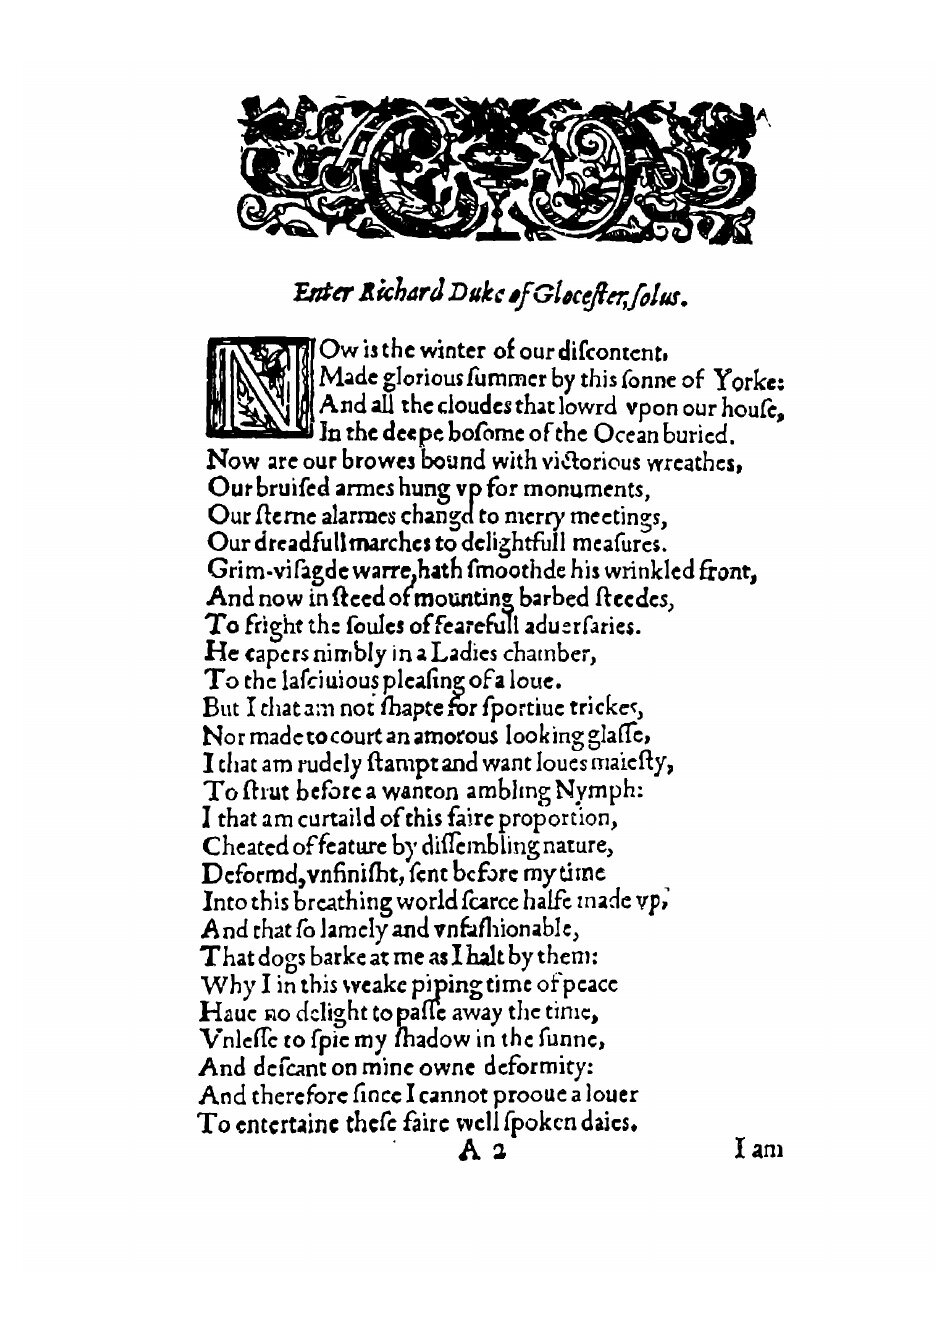 Enter Richard Duke of Gloceſter, ſolus.
NOw is the winter of our diſcontent,
Made glorious ſummer by this ſonne of Yorke:
And all the cloudes that lowrd vpon our houſe,
In the deepe boſome of the Ocean buried.
Now are our browes bound with victorious wreathes,
Our bruiſed armes hung vp for monuments,
Our ſterne alarmes changd to merry meetings,
Our dreadfull marches to delightfull meaſures.
Grim-viſagde warre, hath ſmoothde his wrinkled front,
And now in ſteed of mounting barbed ſteedes,
To fright the ſoules of fearefull aduerſaries.
He capers nimbly in a Ladies chamber,
To the laſciuious pleaſing of a loue.
But I that am not ſhapte for ſportiue trickes,
Nor made to court an amorous looking glaſſe,
I that am rudely ſtampt and want loues maieſty,
To ſtrut before a wanton ambling Nymph:
I that am curtaild of this faire proportion,
Cheated of feature by diſſembling nature,
Deformd, vnfiniſht, ſent before my time
Into this breathing world ſcarce halfe made vp,
And that ſo lamely and vnfaſhionable,
That dogs barke at me as I halt by them:
Why I in this weake piping time of peace
Haue no delight to paſſe away the time,
Vnleſſe to ſpie my ſhadow in the ſunne,
And deſcant on mine owne deformity:
And therefore ſince I cannot prooue a louer
To entertaine theſe faire well ſpoken daies.
A 2 I am